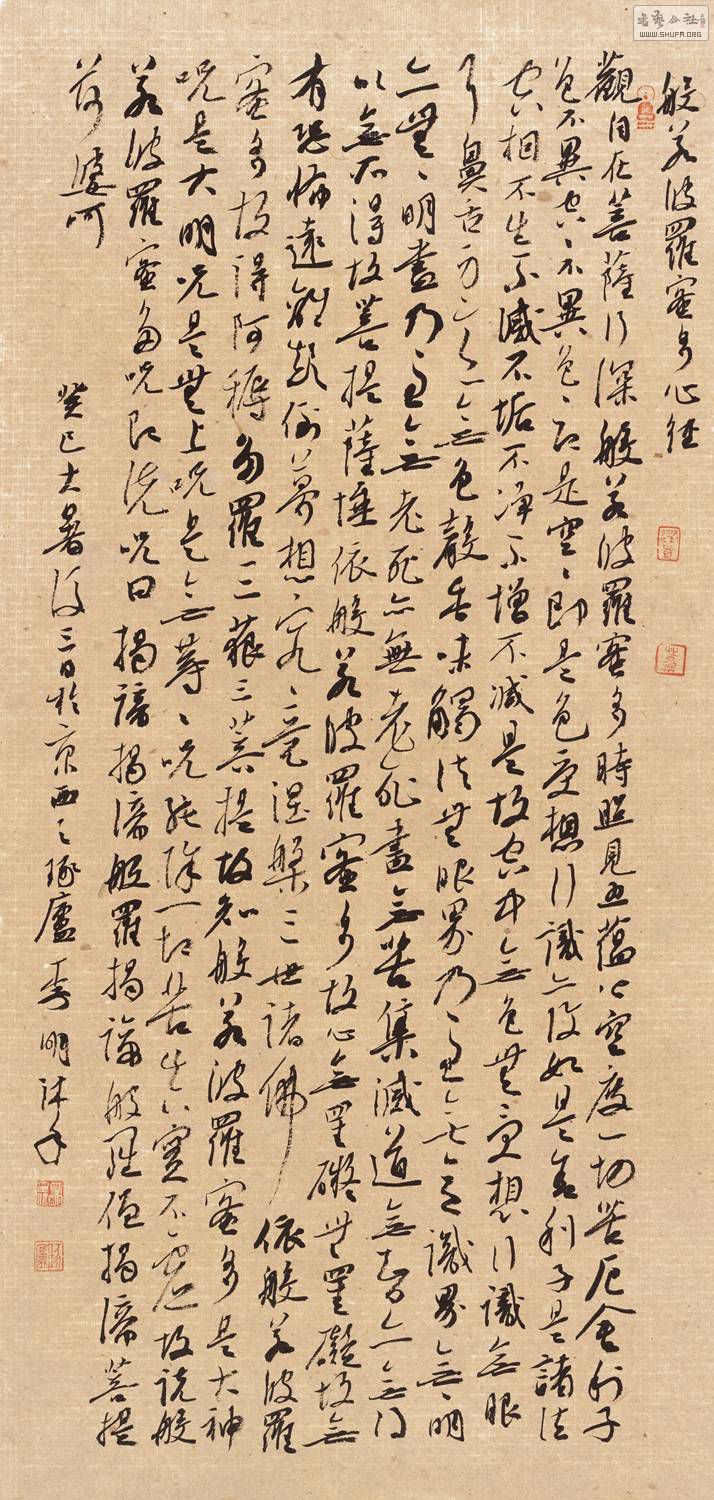 般若波羅蜜多心経
觀自在菩薩行深般若波羅蜜多時照見五蘊皆空度一切苦厄舍利子
色不異空、不異色、即是空、即是色受想行識亦復如是舍利子是諸法
空相不生不滅不垢不淨不增不減是故空中無色無受想行識無眼
耳鼻舌身意無色聲香味觸法無眼界乃至無意識界無、明
亦無、明盡乃至無老死亦無老死盡無苦集滅道無智亦無得
以無所得故菩提薩埵依般若波羅蜜多故心無罣礙無罣礙故無
有恐怖遠離顛倒夢想究竟涅槃三世諸佛依般若波羅
蜜多故得阿耨多羅三藐三菩提故知般若波羅蜜多是大神
咒是大明咒是無上咒是無等、咒能除一切苦真實不虛故說般
若波羅蜜多咒即說咒曰揭諦揭諦般羅揭諦般羅僧揭諦菩提
莎婆訶
癸巳大暑後三日於京西之琢廬李明沐手
書藝公社
WWW.SHUFA.ORG